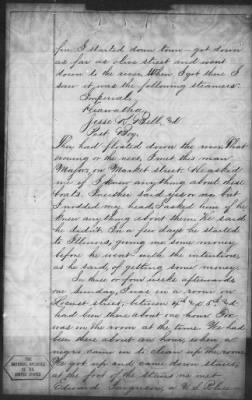 fire. I started down town - got down
as far as olive street and went
down to the river. When I got there I
saw it was the following steamers:
Imperial,
Hiawatha,
Jesse K. Bell, &
Post Boy.
They had floated down the river. That
evening or the next, I met this man
Major, on Market street. He asked
me if I knew anything about these
boats. I neither said yes or no, but
I nodded my head. I asked him if he
knew anything about them. He said
he didn't. In a few days he started
to Illinois, giving me some money
before he went with the intention
as he said, of getting some money.
In three or four weeks afterwards
on Sunday, I was in a room on
Locust street, between 4th & 5th. I
had been there about one hour
was in the room at the time. We had
been there about an hour when a
negro came in to clean up the room
We got up and came down stairs,
at the foot of the stairs we met
Edward a U.S. Police
THE
NATIONAL ARCHIVES
OF THE
UNITED STATES